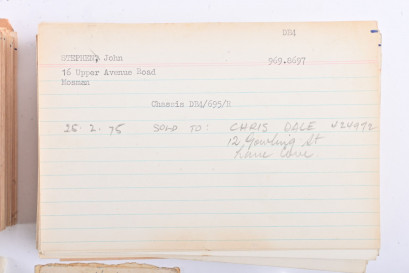 DB4
STEPHENS John 969.8697
16 Upper Avenue Road
Mosman
Chassis DB4/695/R
26. 2. 75 SOLD TO: CHRIS DALE
12 Gowling St
Lane Cove